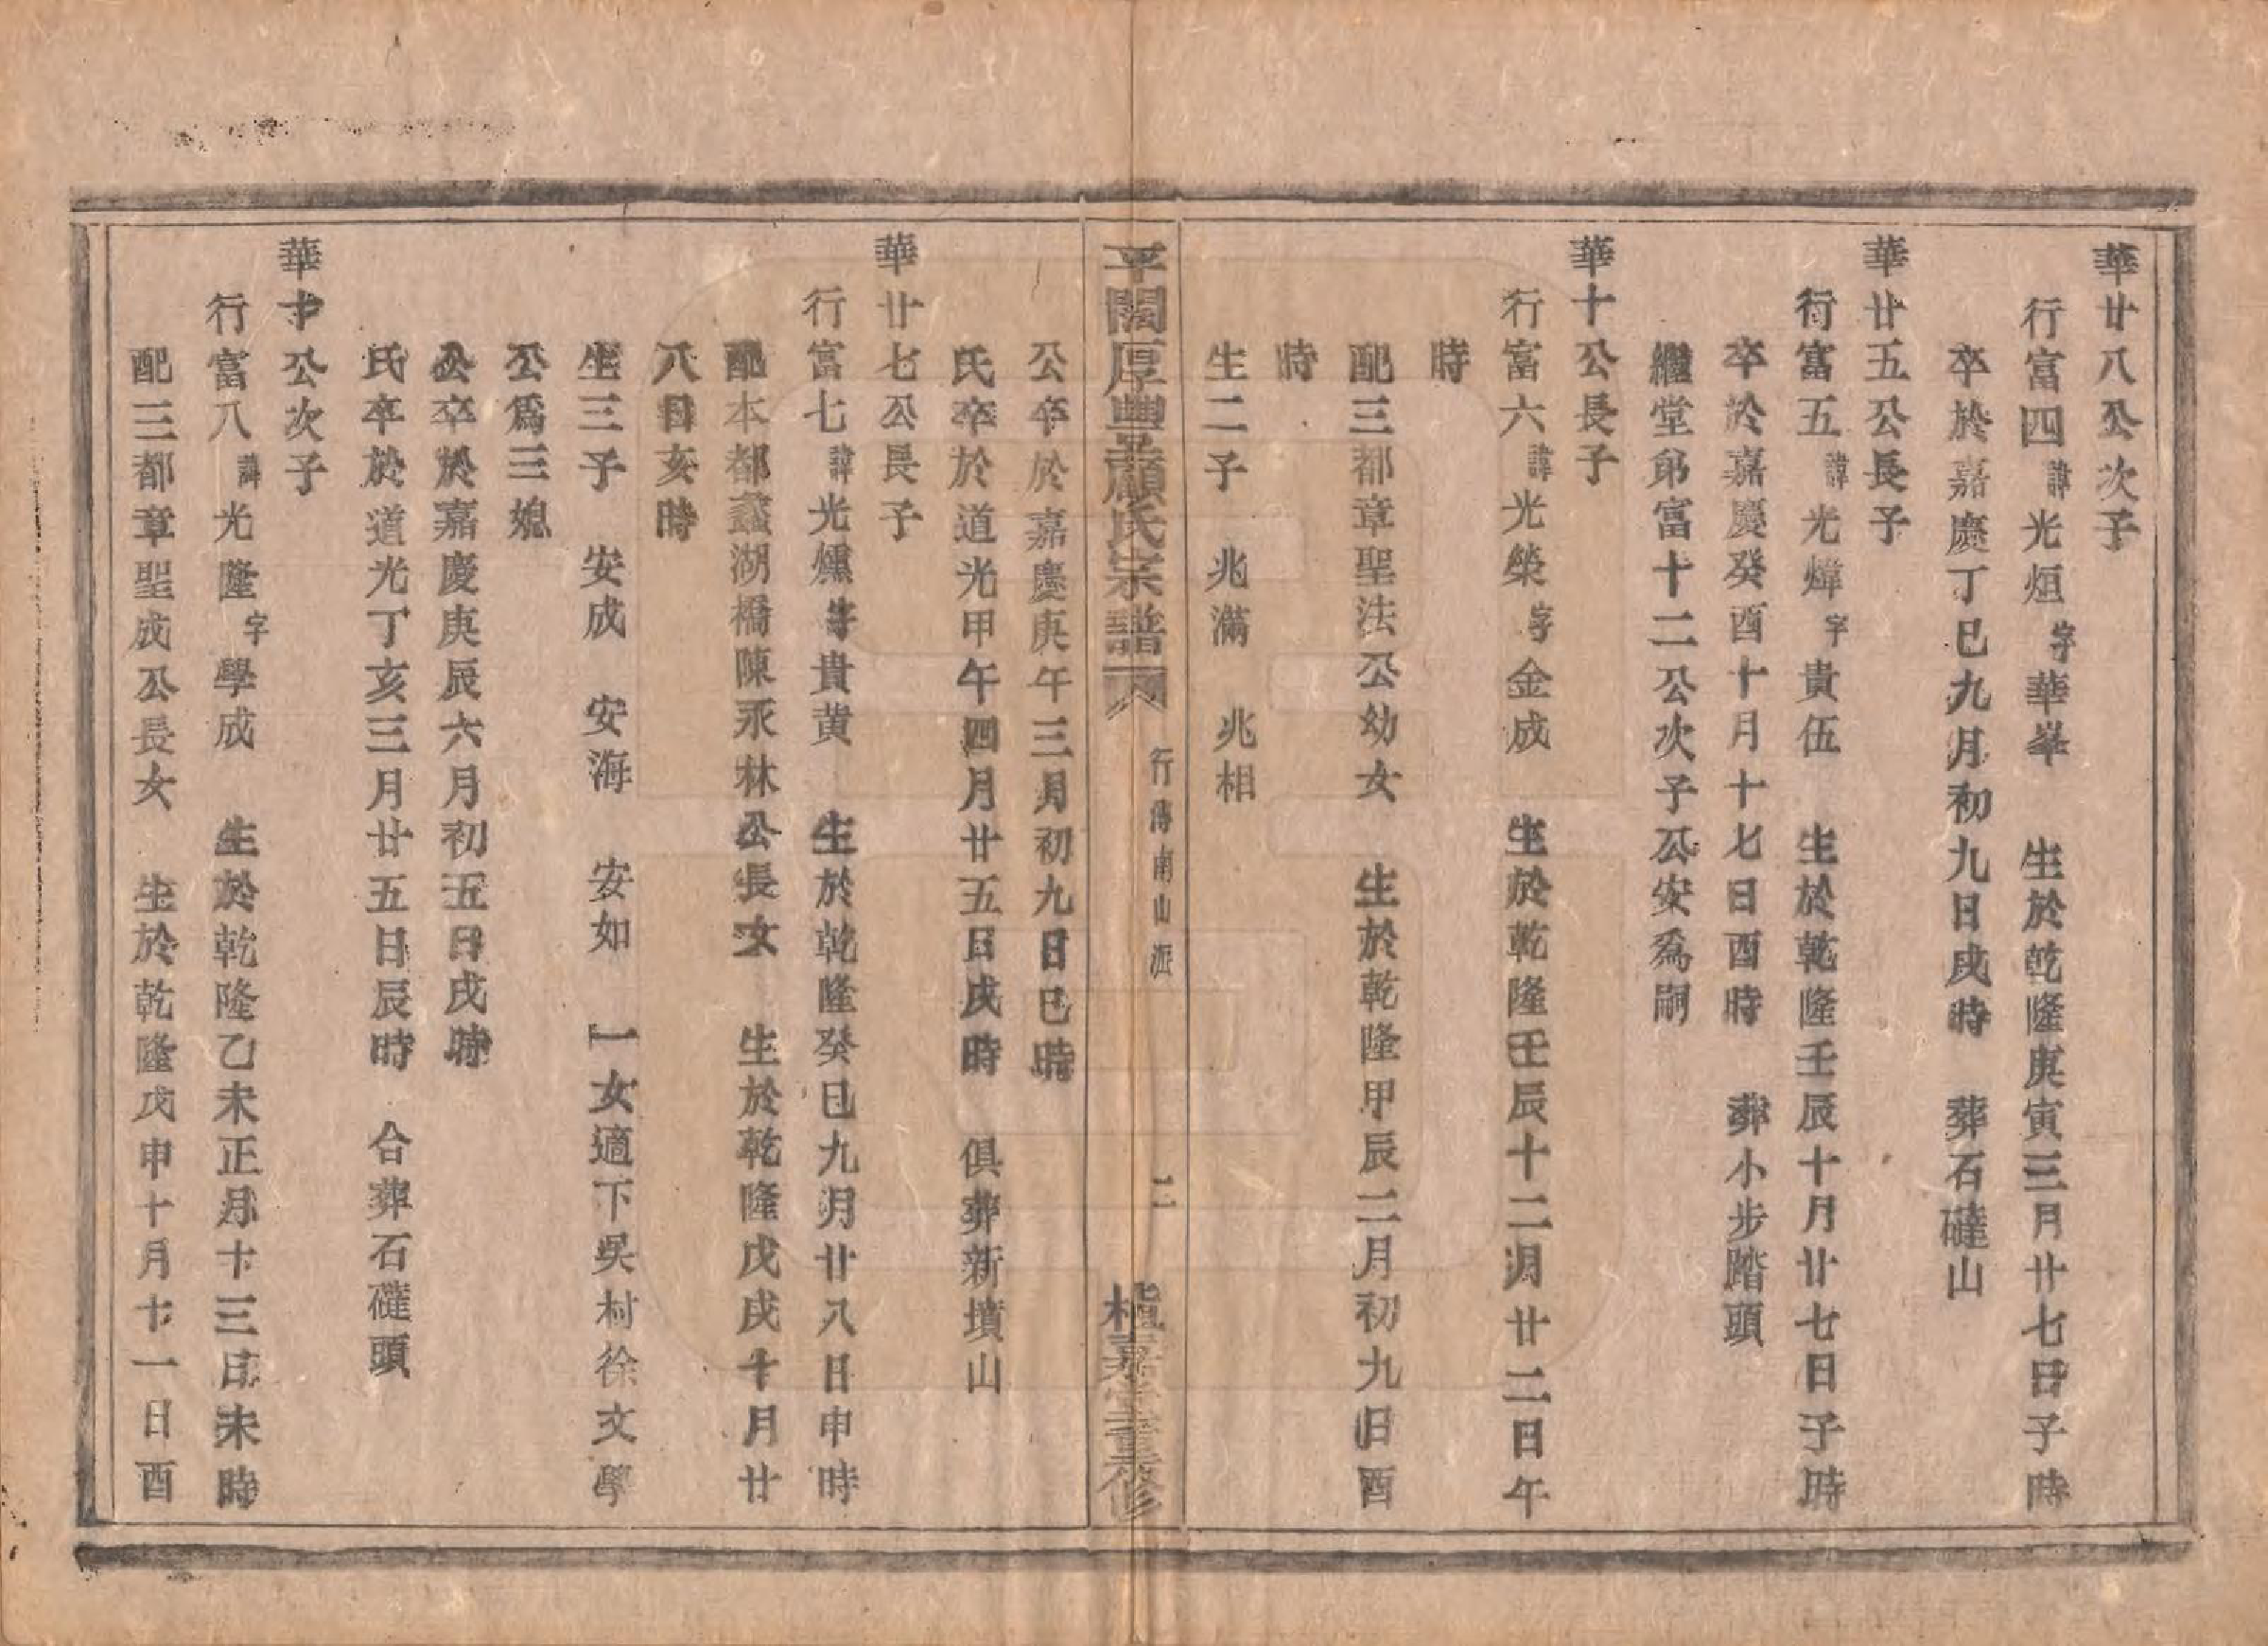 華廿八公次子
行富四諱光烜字華峯　生於乾隆庚寅三月廿七日子時
卒於嘉慶丁巳九月初九日戌時　葬石硾山
華廿五公長子
行富五諱光煒字貴伍　生於乾隆壬辰十月廿七日子時
卒於嘉慶癸酉十月十七日酉時　葬小步踏頭
繼堂弟富十二公次子公安爲嗣
華十公長子
行富六諱光榮字金成　生於乾隆壬辰十二月廿二日午
時
配三都章聖法公幼女　生於乾隆甲辰二月初九日酉
時
生二子　兆滿　兆相
平闊厚豐顧氏宗譜　行傳南山派　二　植嘉堂重修
公卒於嘉慶庚午三月初九日巳時
氏卒於道光甲午四月廿五日戌時　俱葬新墳山
華廿七公長子
行富七諱光燻字貴黄　生於乾隆癸巳九月廿八日申時
配本都蠡湖橋陳永林公長女　生於乾隆戊戌十月廿
八日亥時
生三子　安成　安海　安如　一女適下吳村徐文學
公爲三媳
公卒於嘉慶庚辰六月初五日戌時
氏卒於道光丁亥三月廿五日辰時　合葬石硾頭
華十公次子
行富八諱光隆字學成　生於乾隆乙未正月十三日未時
配三都章聖成公長女　生於乾隆戊申十月十一日酉